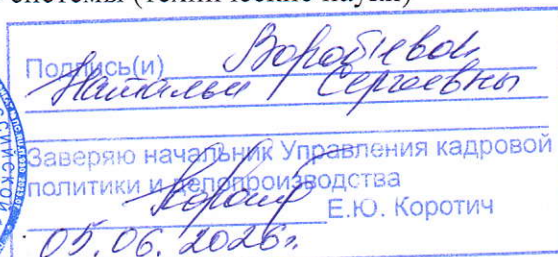 системы (технические науки)
Подпись(и) Воробьевой
Натальи Сергеевны
Заверяю начальник Управления кадровой
политики и делопроизводства
Е.Ю. Коротич
05.06.2026г.